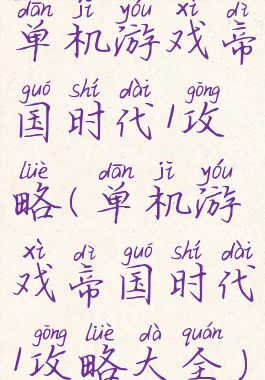 dān jī yóu xì dì
单机游戏帝
guó shí dài gōng
国时代/攻
lüè dān jī yóu
略(单机游
xì dì guó shí dài
戏帝国时代
gōng lüè dà quán
/攻略大全)